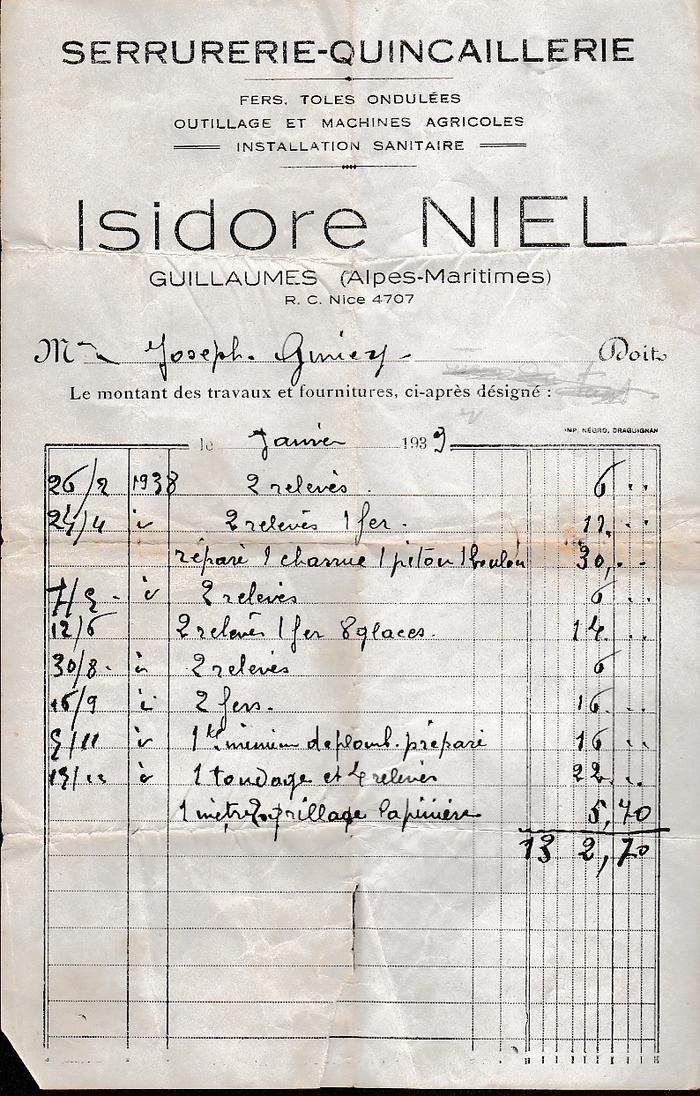 SERRURERIE-QUINCAILLERIE
FERS, TOLES ONDULÉES
OUTILLAGE ET MACHINES AGRICOLES
INSTALLATION SANITAIRE
Isidore NIEL
GUILLAUMES (Alpes-Maritimes)
R. C. Nice 4707
Mr Joseph Doit
Le montant des travaux et fournitures, ci-après désigné :
IMP. NÉGRO, DRAGUIGNAN
le Janvier 1939
26/2 1938 2 relevés. 6 ..
24/4 2 relevés 1 fer. ..
réparé 1 charrue 1 piton 1 boulon 30, ..
2 relevés 6 ..
12/6 2 relevés 1 fer 8 glaces. 14 ..
30/8 2 relevés 6
16/9 2 fers. 16 ..
1 k minium de plomb préparé 16 ..
1 tondage et 4 relevés 22 ..
1 mètre grillage lapinière 5,70
132,70